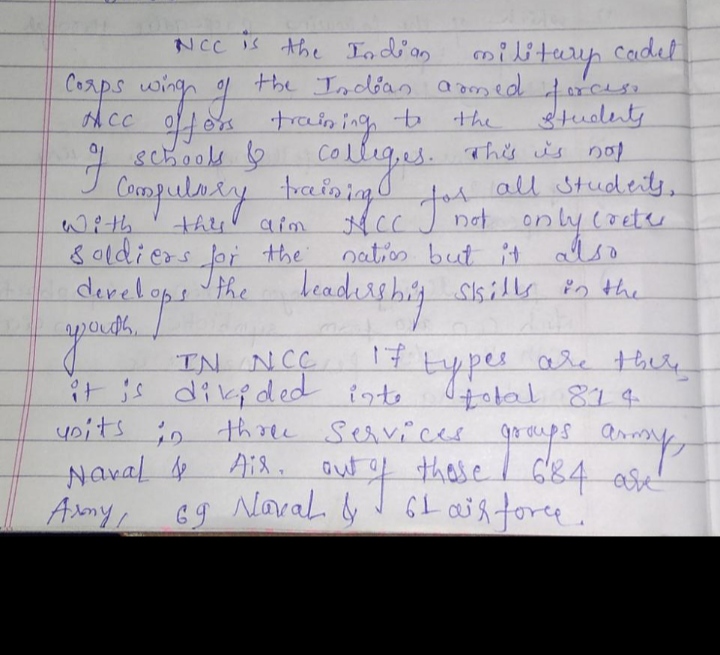 NCC is the Indian military cadet
Corps wing of the Indian armed forces.
NCC offers training to the students
of schools & colleges. This is not
Compulsory training for all students.
With this aim NCC not only crete
soldiers for the nation but it also
develops the leadership skills in the
youth.
IN NCC 17 types are there,
it is divided into total 814
units in three services groups army,
Naval & Air. out of these 684 are
Army, 69 Naval & 61 airforce.